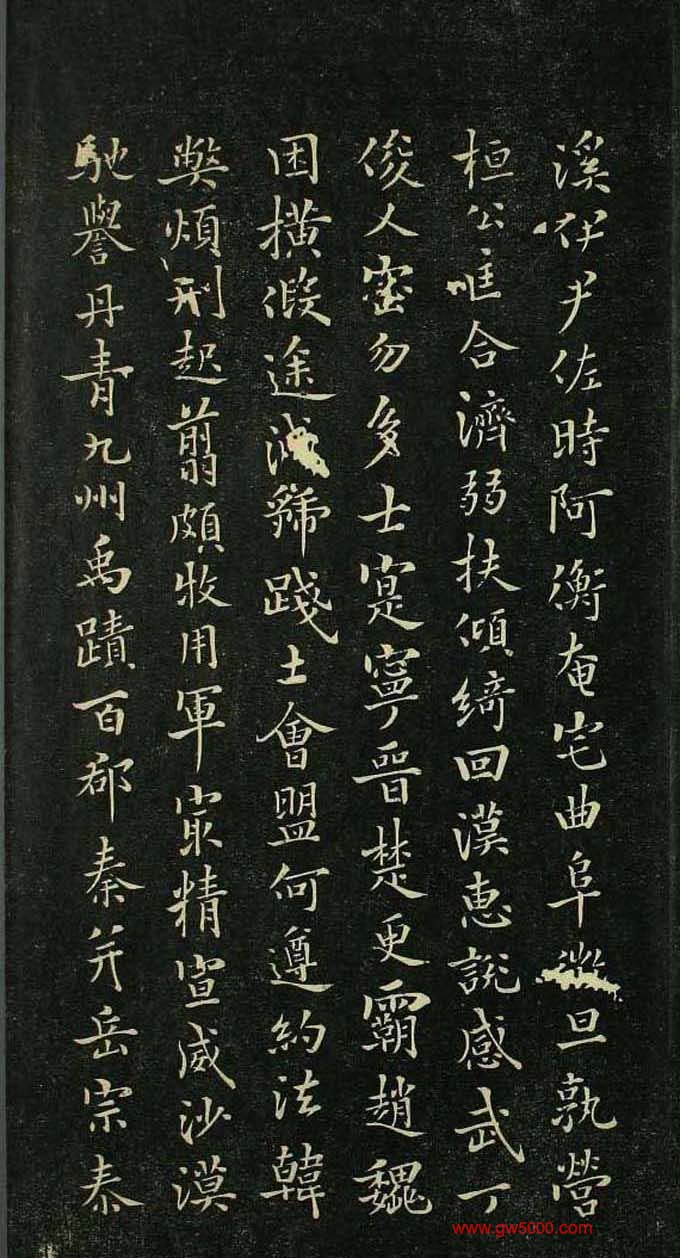 溪伊尹佐時阿衡奄宅曲阜微旦孰營
桓公匡合濟弱扶傾綺回漢惠說感武丁
俊乂密勿多士寔寧晉楚更霸趙魏
困橫假途滅虢踐土會盟何遵約法韓
弊煩刑起翦頗牧用軍最精宣威沙漠
馳譽丹青九州禹蹟百郡秦并岳宗泰
www.gw5000.com